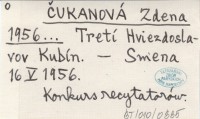 0
ČUKANOVÁ Zdena
1956... Tretí Hviezdosla-
vov Kubín. – Smena
16 V 1956.
Konkurs recytatorów.
BJ/010/0365